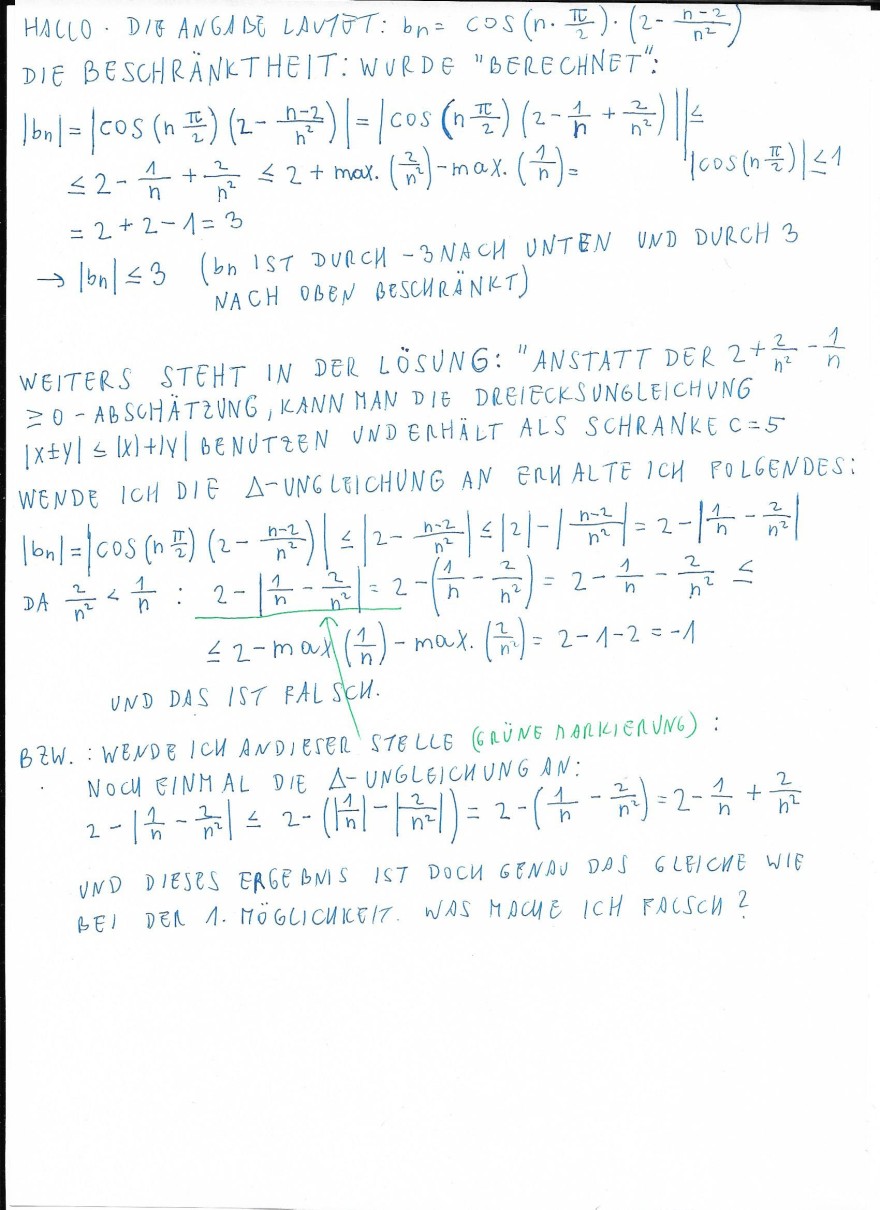 HALLO. DIE ANGABE LAUTET: bn = COS (n · π/2) · (2 - (n-2)/n²)
DIE BESCHRÄNKTHEIT: WURDE "BERECHNET":
|bn| = |COS (n π/2) (2 - (n-2)/n²)| = |COS (n π/2) (2 - 1/n + 2/n²)| | ≤
≤ 2 - 1/n + 2/n² ≤ 2 + max. (2/n²) - max. (1/n) = |cos(n π/2)| ≤ 1
= 2 + 2 - 1 = 3
→ |bn| ≤ 3 (bn IST DURCH -3 NACH UNTEN UND DURCH 3
NACH OBEN BESCHRÄNKT)
WEITERS STEHT IN DER LÖSUNG: "ANSTATT DER 2 + 2/n² - 1/n
≥ 0 - ABSCHÄTZUNG, KANN MAN DIE DREIECKSUNGLEICHUNG
|x±y| ≤ |x|+|y| BENUTZEN UND ERHÄLT ALS SCHRANKE C = 5
WENDE ICH DIE Δ-UNGLEICHUNG AN ERHALTE ICH FOLGENDES:
|bn| = |COS (n π/2) (2 - (n-2)/n²)| ≤ |2 - (n-2)/n²| ≤ |2| - |(n-2)/n²| = 2 - |1/n - 2/n²|
DA 2/n² < 1/n : 2 - |1/n - 2/n²| = 2 - (1/n - 2/n²) = 2 - 1/n - 2/n² ≤
≤ 2 - max (1/n) - max. (2/n²) = 2 - 1 - 2 = -1
UND DAS IST FALSCH.
BZW. : WENDE ICH AN DIESER STELLE (GRÜNE MARKIERUNG) :
NOCH EINMAL DIE Δ-UNGLEICHUNG AN:
2 - |1/n - 2/n²| ≤ 2 - (|1/n| - |2/n²|) = 2 - (1/n - 2/n²) = 2 - 1/n + 2/n²
UND DIESES ERGEBNIS IST DOCH GENAU DAS GLEICHE WIE
BEI DER 1. MÖGLICHKEIT. WAS MACHE ICH FALSCH?